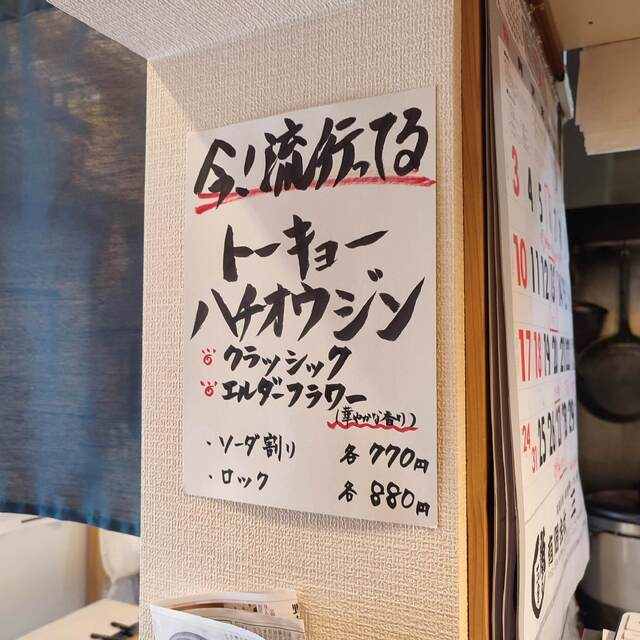 今!流行ってる
トーキョー
ハチオウジン
クラッシック
エルダーフラワー
(華やかな香り)
・ソーダ割り 各770円
・ロック 各880円
3 4 5
10 11 12 13
17 18 19 20
24 25 26 27 28 29
31